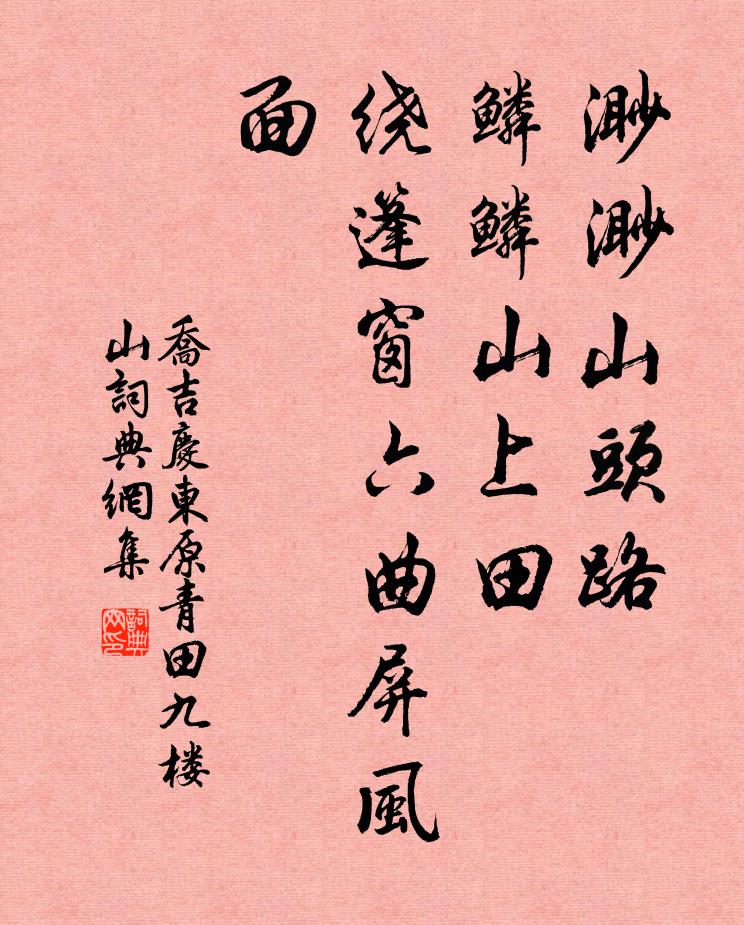 渺渺山頭路
鱗鱗山上田
绕篷窗六曲屏風
面
喬吉慶東原青田九楼
山詞典網集
詞典网印